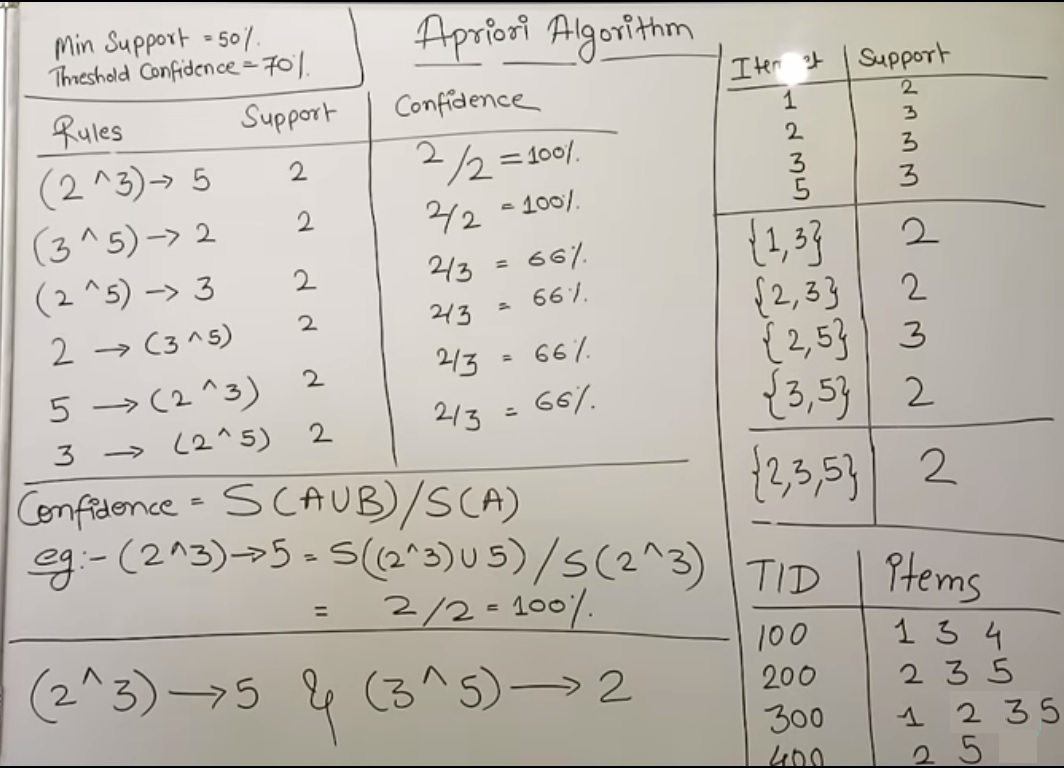 Apriori Algorithm
Min Support = 50%.
Threshold Confidence = 70%.
Rules Support Confidence
(2 ^ 3) → 5 2 2/2 = 100%.
(3 ^ 5) → 2 2 2/2 = 100%.
(2 ^ 5) → 3 2 2/3 = 66%.
2 → (3 ^ 5) 2 2/3 = 66%.
5 → (2 ^ 3) 2 2/3 = 66%.
3 → (2 ^ 5) 2 2/3 = 66%.
Confidence = S(A∪B)/S(A)
eg:- (2 ^ 3) → 5 = S((2 ^ 3) ∪ 5) / S(2 ^ 3)
= 2/2 = 100%.
(2 ^ 3) → 5 & (3 ^ 5) → 2
Support
1 2
2 3
3 3
5 3
{1,3} 2
{2,3} 2
{2,5} 3
{3,5} 2
{2,3,5} 2
TID items
100 1 3 4
200 2 3 5
300 1 2 3 5
400 2 5